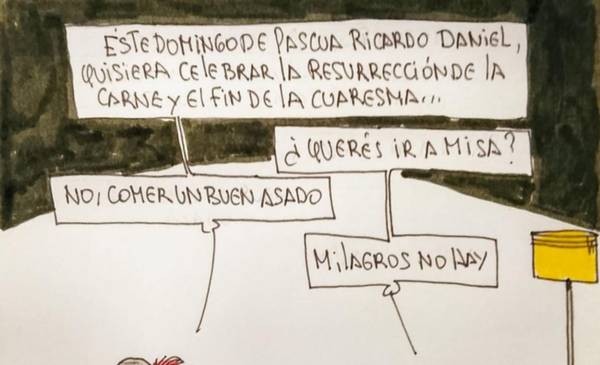 ÉSTE DOMINGO DE PASCUA RICARDO DANIEL,
QUISIERA CELEBRAR LA RESURRECCIÓN DE LA
CARNE Y EL FIN DE LA CUARESMA...
¿QUERÉS IR A MISA?
NO, COMER UN BUEN ASADO
MILAGROS NO HAY